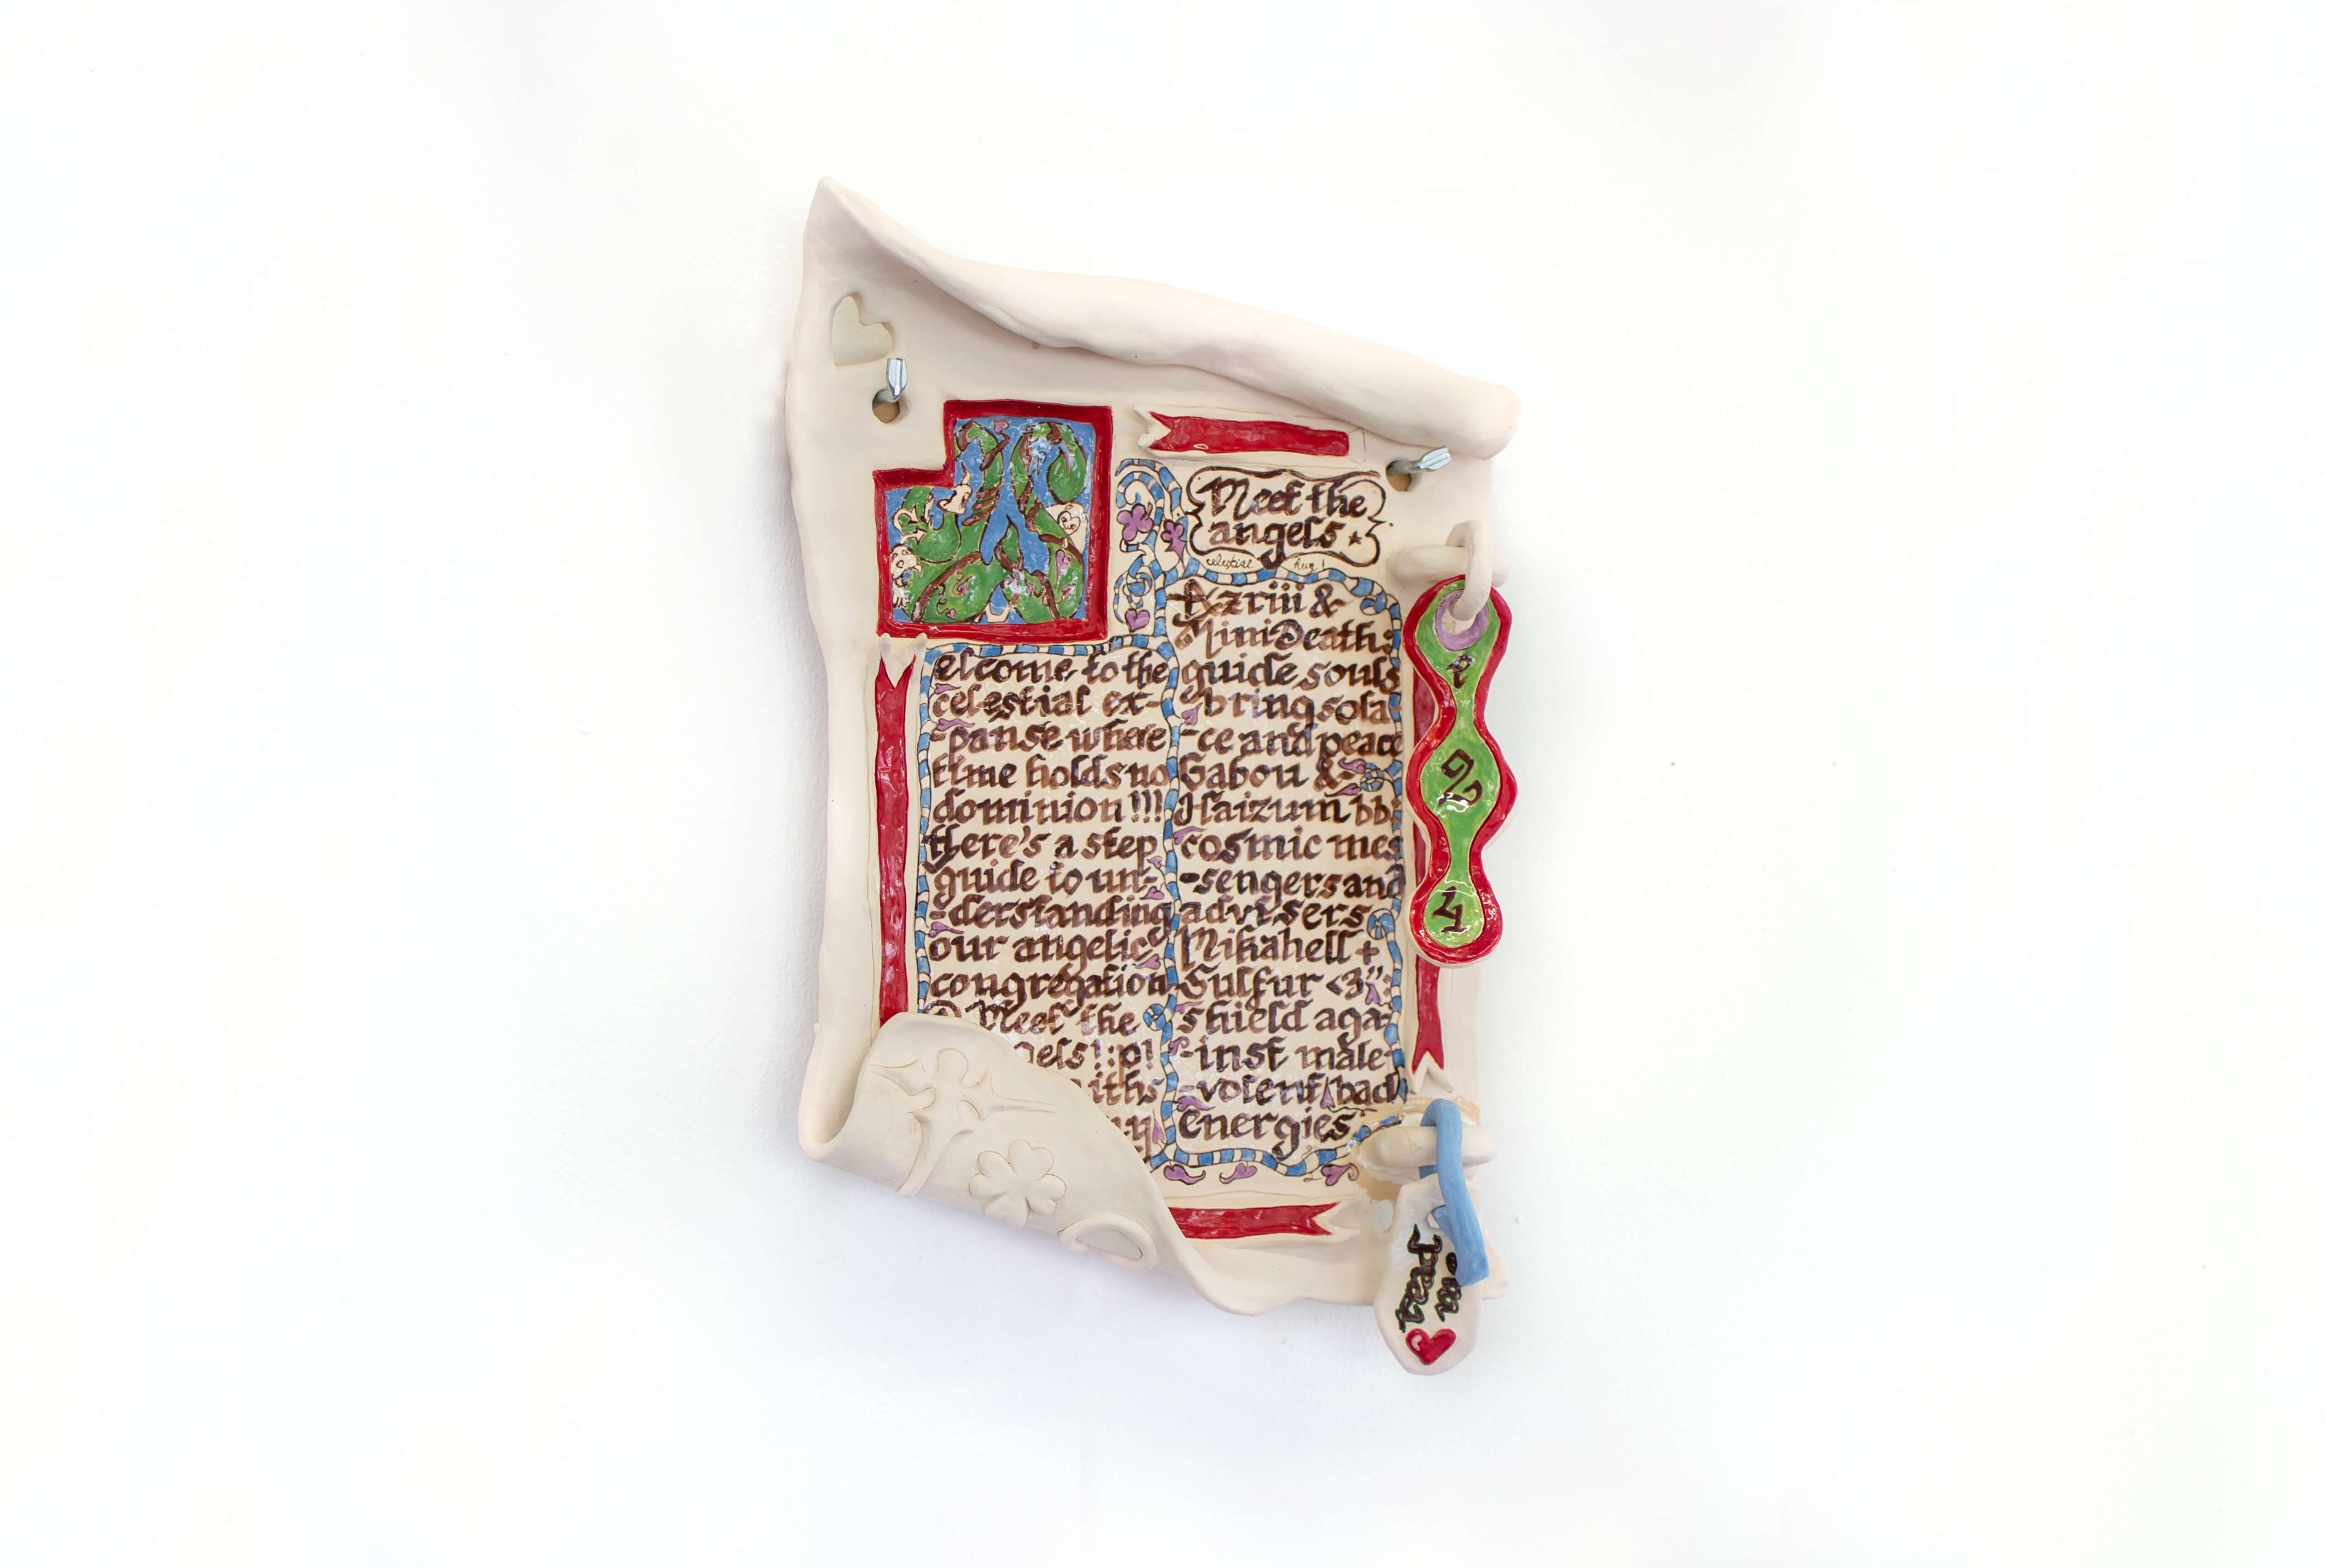 elcome to the
celestial ex-
-panse where
time holds no
dominion!!!
there's a step
guide to un-
-derstanding
our angelic
congregation
Meet the
els!:p!
iths
Meet the
angels
celestial hug!
Azriii &
MiniDeath:
guide souls
bring sola-
-ce and peace
Gabou &
Haizum bb:
cosmic mes
-sengers and
advisers
Mikahell +
Sulfur <3":
shield aga-
-inst male-
-volent/bad
energies